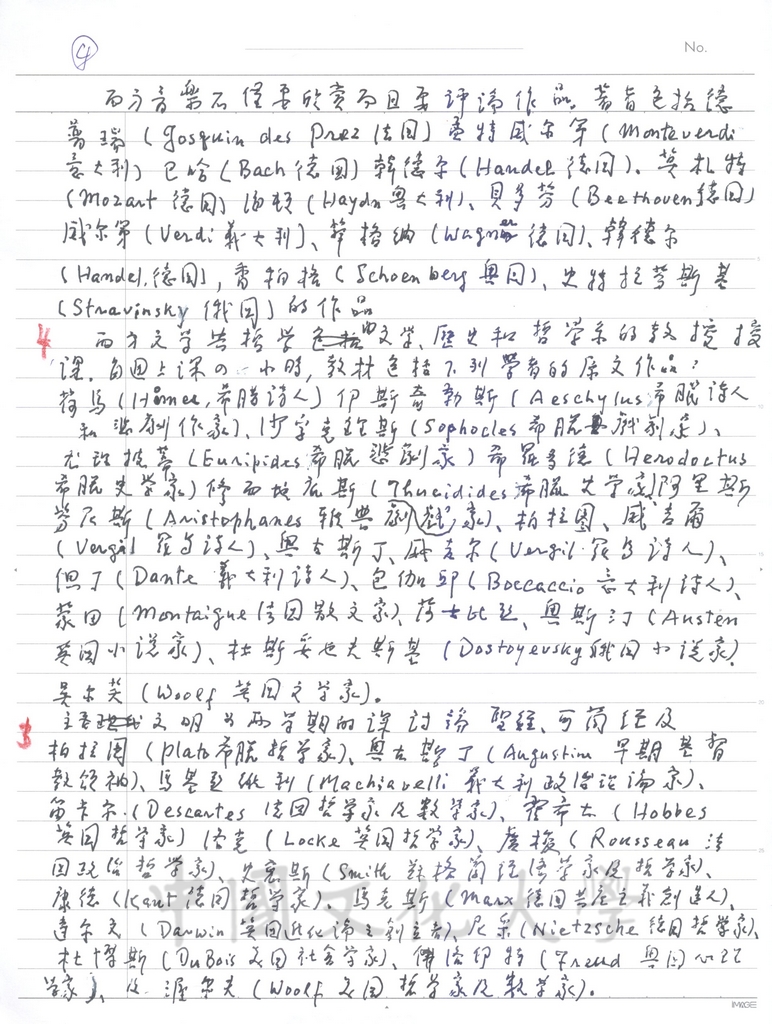 ④
No.
西方音樂不僅要欣賞而且要評論作品。著者包括德
普瑞(Josquin des Prez 法国)蒙特威尔第(Monteverdi
意大利)巴哈(Bach 德国)韓德尔(Handel 德国)、莫札特
(Mozart 德国)海頓(Haydn 奥大利)、貝多芬(Beethoven 德国)
威尔第(Verdi 義大利)、華格納(Wagner 德国)、韓德尔
(Handel, 德国), 香柏格(Schoenberg 奥国)、史特拉芬斯基
(Stravinsky 俄国)的作品
4 西方文学与哲学由文学、歷史和哲学系的教授授
课. 每週上课四小時, 教材包括下列學者的原文作品:
荷馬(Homer, 希腊诗人)伊斯奇勒斯(Aeschylus 希腊诗人
和悲劇作家)、沙孚克里斯(Sophocles 希腊戲劇家)、
尤里披蒂(Euripides 希腊悲劇家)希羅多德(Herodoctus
希腊史学家)修西提底斯(Thucidides 希臘史学家)、阿里斯
芬尼斯(Aristophanes 雅典劇戲家)、柏拉图、威吉爾
(Vergil 羅马诗人)、奥古斯丁、威吉尔(Vergil 羅马诗人)、
但丁(Dante 義大利诗人)、包伽邱(Boccaccio 意大利诗人)、
蒙田(Montaigne 法国散文家)、莎士比亚、奥斯汀(Austen
英国小说家)、杜斯妥也夫斯基(Dostoyevsky 俄国小说家)、
吴尔芙(Woolf 英国文学家)。
3 主要文明为两学期的课讨论聖经、可蘭经及
柏拉图(plato 希腊哲学家)、奥古斯丁(Augustin 早期基督
教领袖)、馬基亚維利(Machiavelli 義大利政治论家)、
笛卡尔(Descartes 法国哲学家及数学家)、霍布士(Hobbes
英国哲学家)洛克(Locke 英国哲学家)、盧梭(Rousseau 法
国政治哲学家)、史密斯(Smith 蘇格蘭经济学家及哲学家)、
康德(Kant 德国哲学家)、馬克斯(Marx 德国共產主義創造人)、
達尔文(Darwin 英国進化論之創立者)、尼采(Nietzsche 德国哲学家)、
杜博斯(DuBois 美国社会学家)、佛洛伊特(Freud 奥国心理
学家)、及渥尔夫(Woolf 美国哲学家及数学家)。
中國文化大學
IMAGE